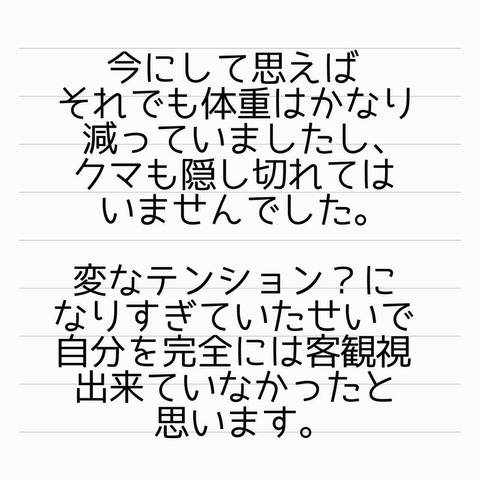 今にして思えば
それでも体重はかなり
減っていましたし、
クマも隠し切れては
いませんでした。
変なテンション？に
なりすぎていたせいで
自分を完全には客観視
出来ていなかったと
思います。